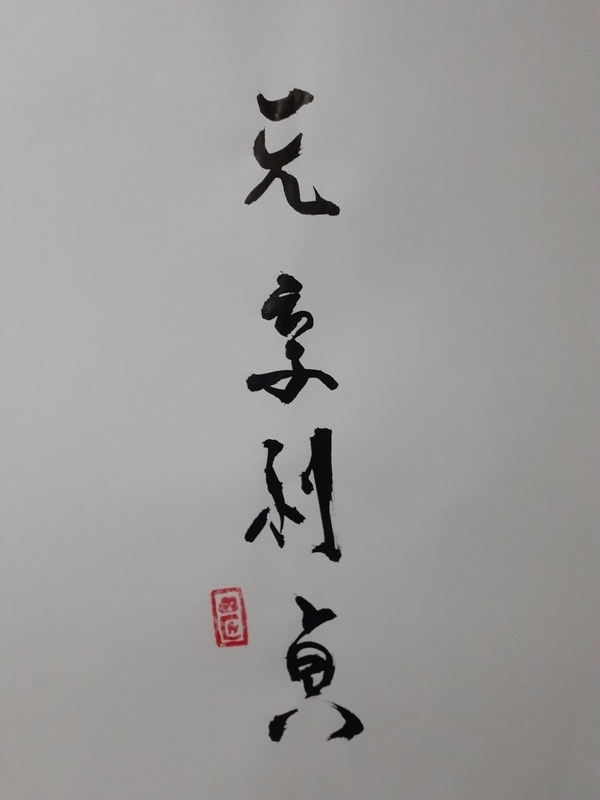 元亨利貞